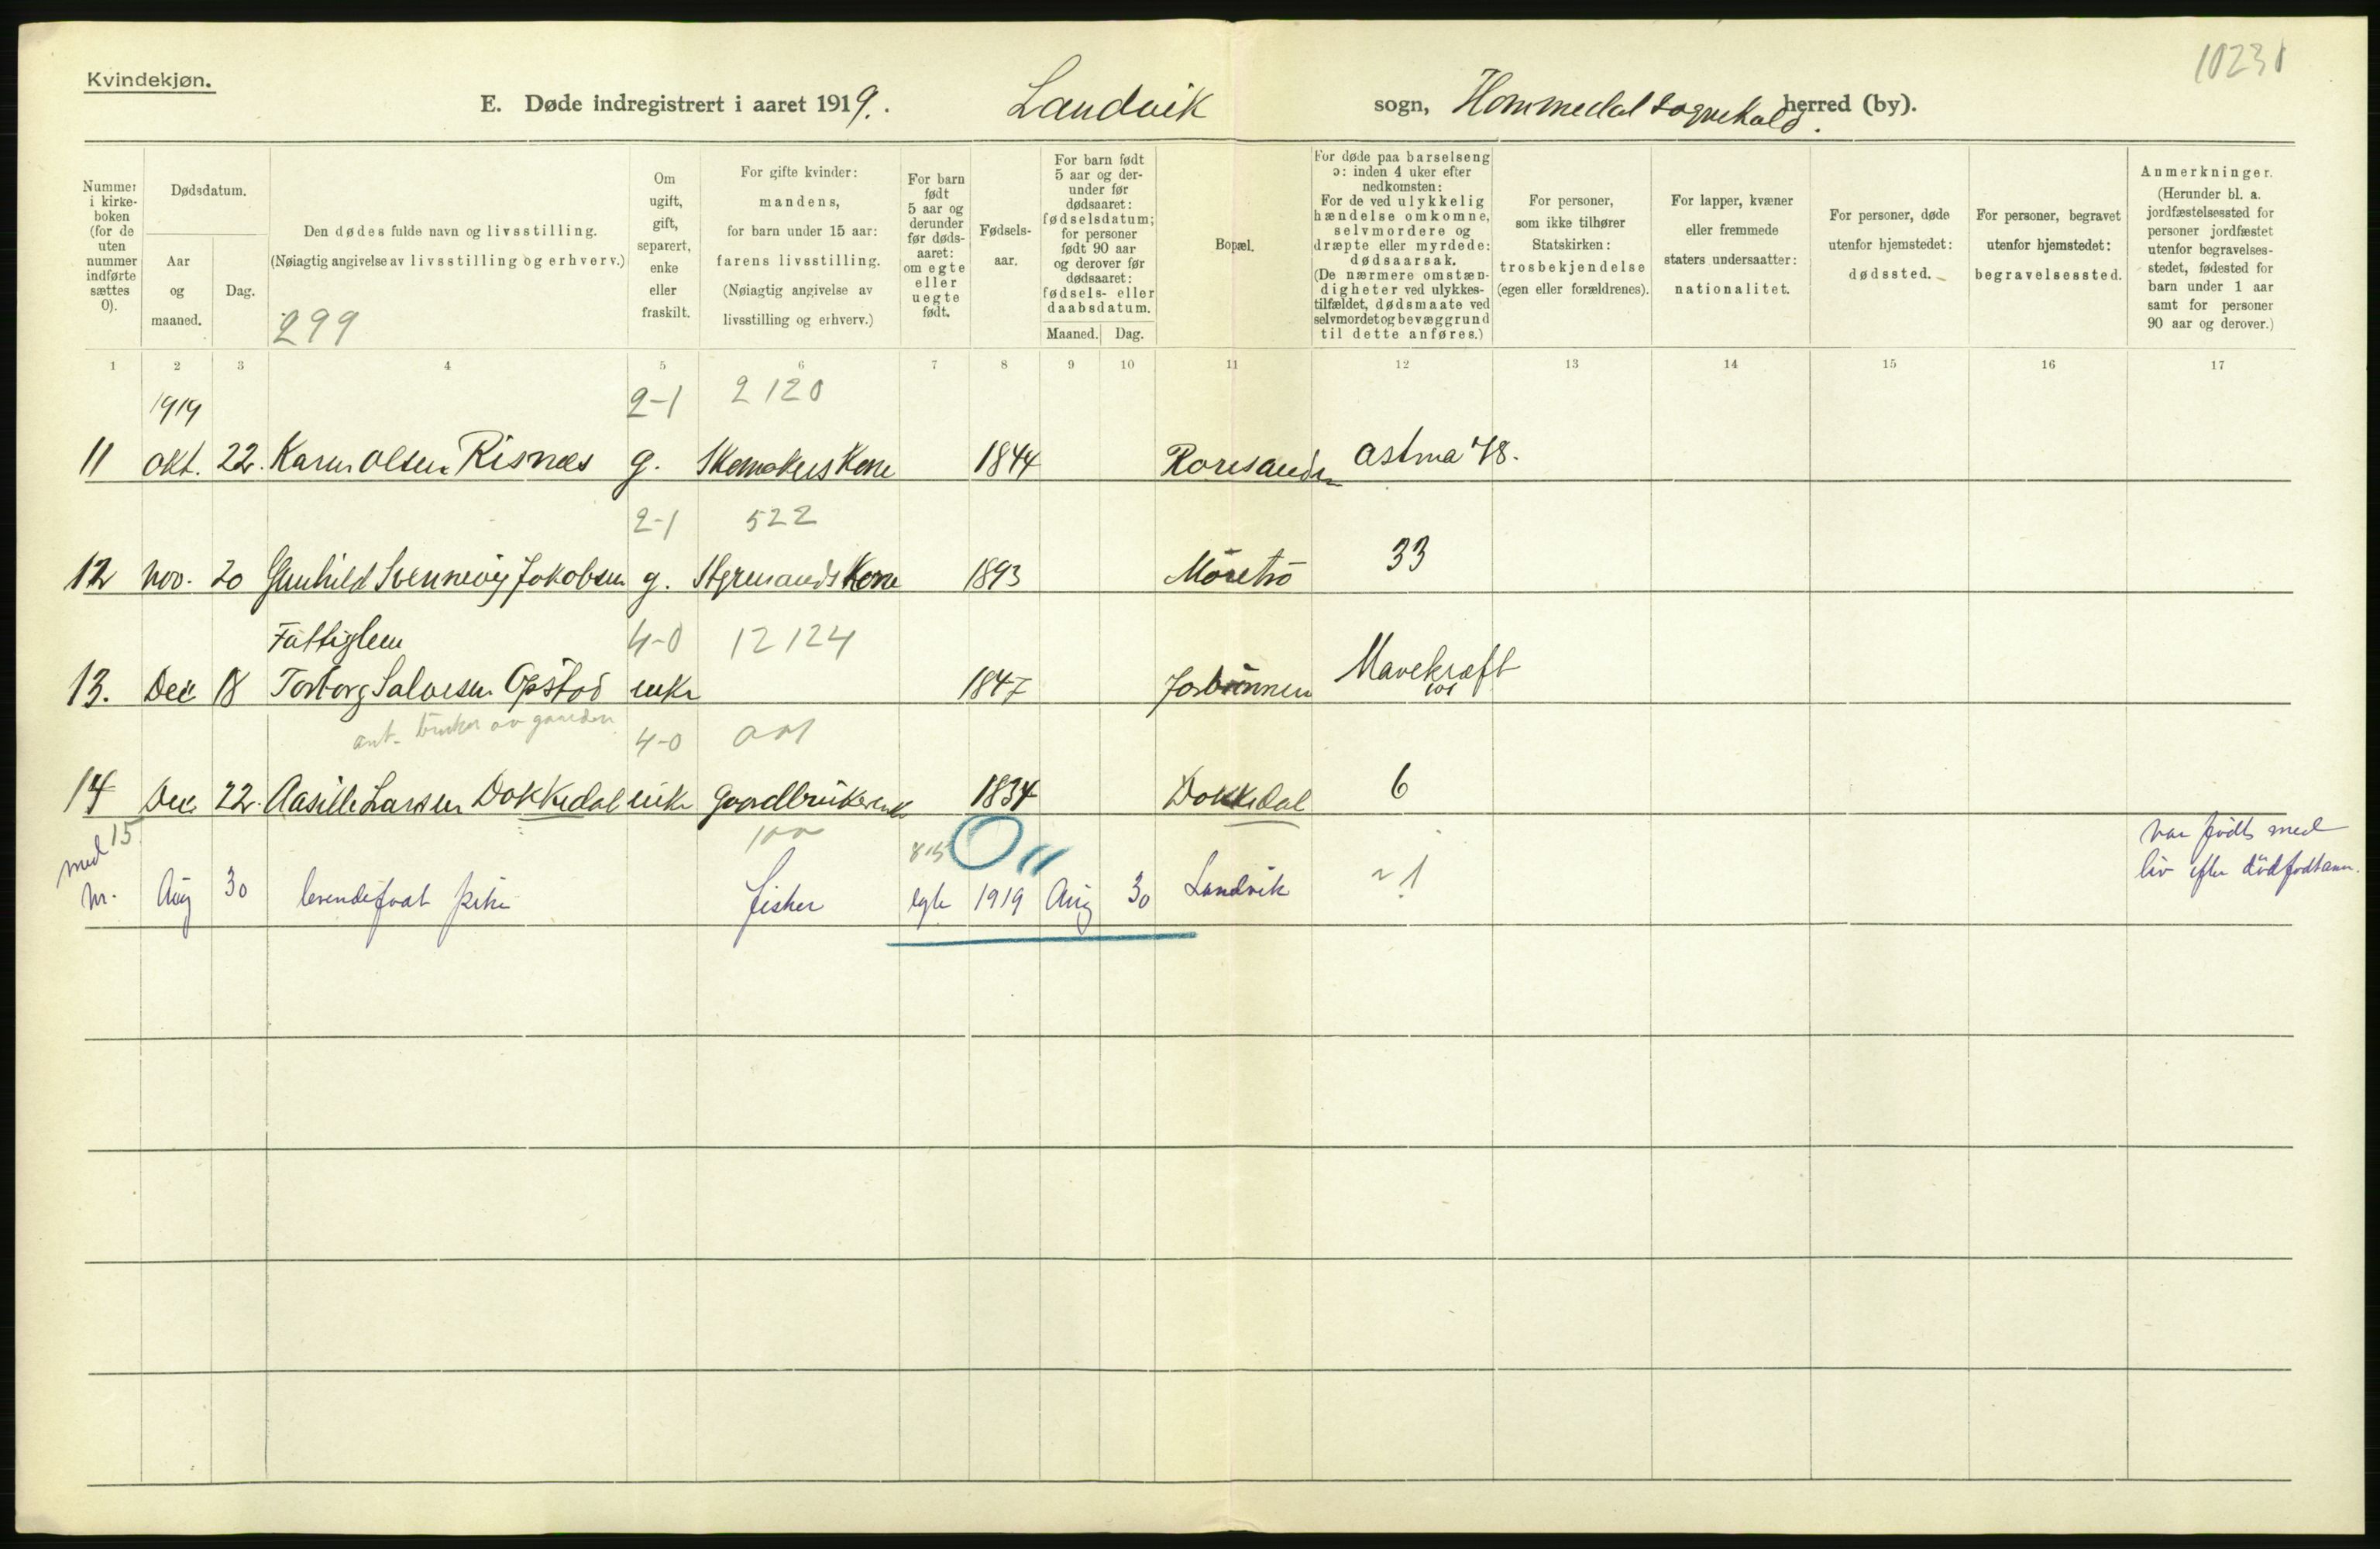 Kvindekjøn.
10230
E. Døde indregistrert i aaret 1919.
Landvik sogn, Hommedal sognekald herred (by).
Nummer i kirkeboken (for de uten nummer indførte sættes 0).
Dødsdatum.
Aar og maaned.
Dag.
Den dødes fulde navn og livsstilling.
(Nøiagtig angivelse av livsstilling og erhverv.)
299
Om ugift, gift, separert, enke eller fraskilt.
For gifte kvinder: mandens, for barn under 15 aar: farens livsstilling. (Nøiagtig angivelse av livsstilling og erhverv.)
For barn født 5 aar og derunder før dødsaaret: om egte eller uegte født.
Fødselsaar.
For barn født 5 aar og derunder før dødsaaret: fødselsdatum; for personer født 90 aar og derover før dødsaaret: fødsels- eller daabsdatum.
Maaned. Dag.
Bopæl.
For døde paa barselseng ɔ: inden 4 uker efter nedkomsten: For de ved ulykkelig hændelse omkomne, selvmordere og dræpte eller myrdede: dødsaarsak. (De nærmere omstændigheter ved ulykkestilfældet, dødsmaate ved selvmordet og bevæggrund til dette anføres.)
For personer, som ikke tilhører Statskirken: trosbekjendelse (egen eller forældrenes).
For lapper, kvæner eller fremmede staters undersaatter: nationalitet.
For personer, døde utenfor hjemstedet: dødssted.
For personer, begravet utenfor hjemstedet: begravelsessted.
Anmerkninger. (Herunder bl. a. jordfæstelsessted for personer jordfæstet utenfor begravelsesstedet, fødested for barn under 1 aar samt for personer 90 aar og derover.)
1 2 3 4 5 6 7 8 9 10 11 12 13 14 15 16 17
1919 2-1 2120
11 Okt. 22. Karen Olsen Risnæs g. Skomakers Kone 1844 Roresanden Astma 48.
2-1 522
12 Nov. 20 Gunhild Svennevig Jakobsen g. Styrmands Kone 1893 Möretrö 33
Fattiglem 4-0 12124
13. Dec 18 Torborg Salvesen Opstad enke 1847 Mavekræft
101
ant. bruker av gaarden 4-0
14 Dec. 22. Aasille Larsen Dokkedal enke Gaardbrukerenke 1834 Dokkedal 6
med 15 100 815 O 11 var födt med
nr. Aug 30 levendefødt pike fisker egte 1919 Aug 30 Landvik ~1 liv efter dödfödtanm.